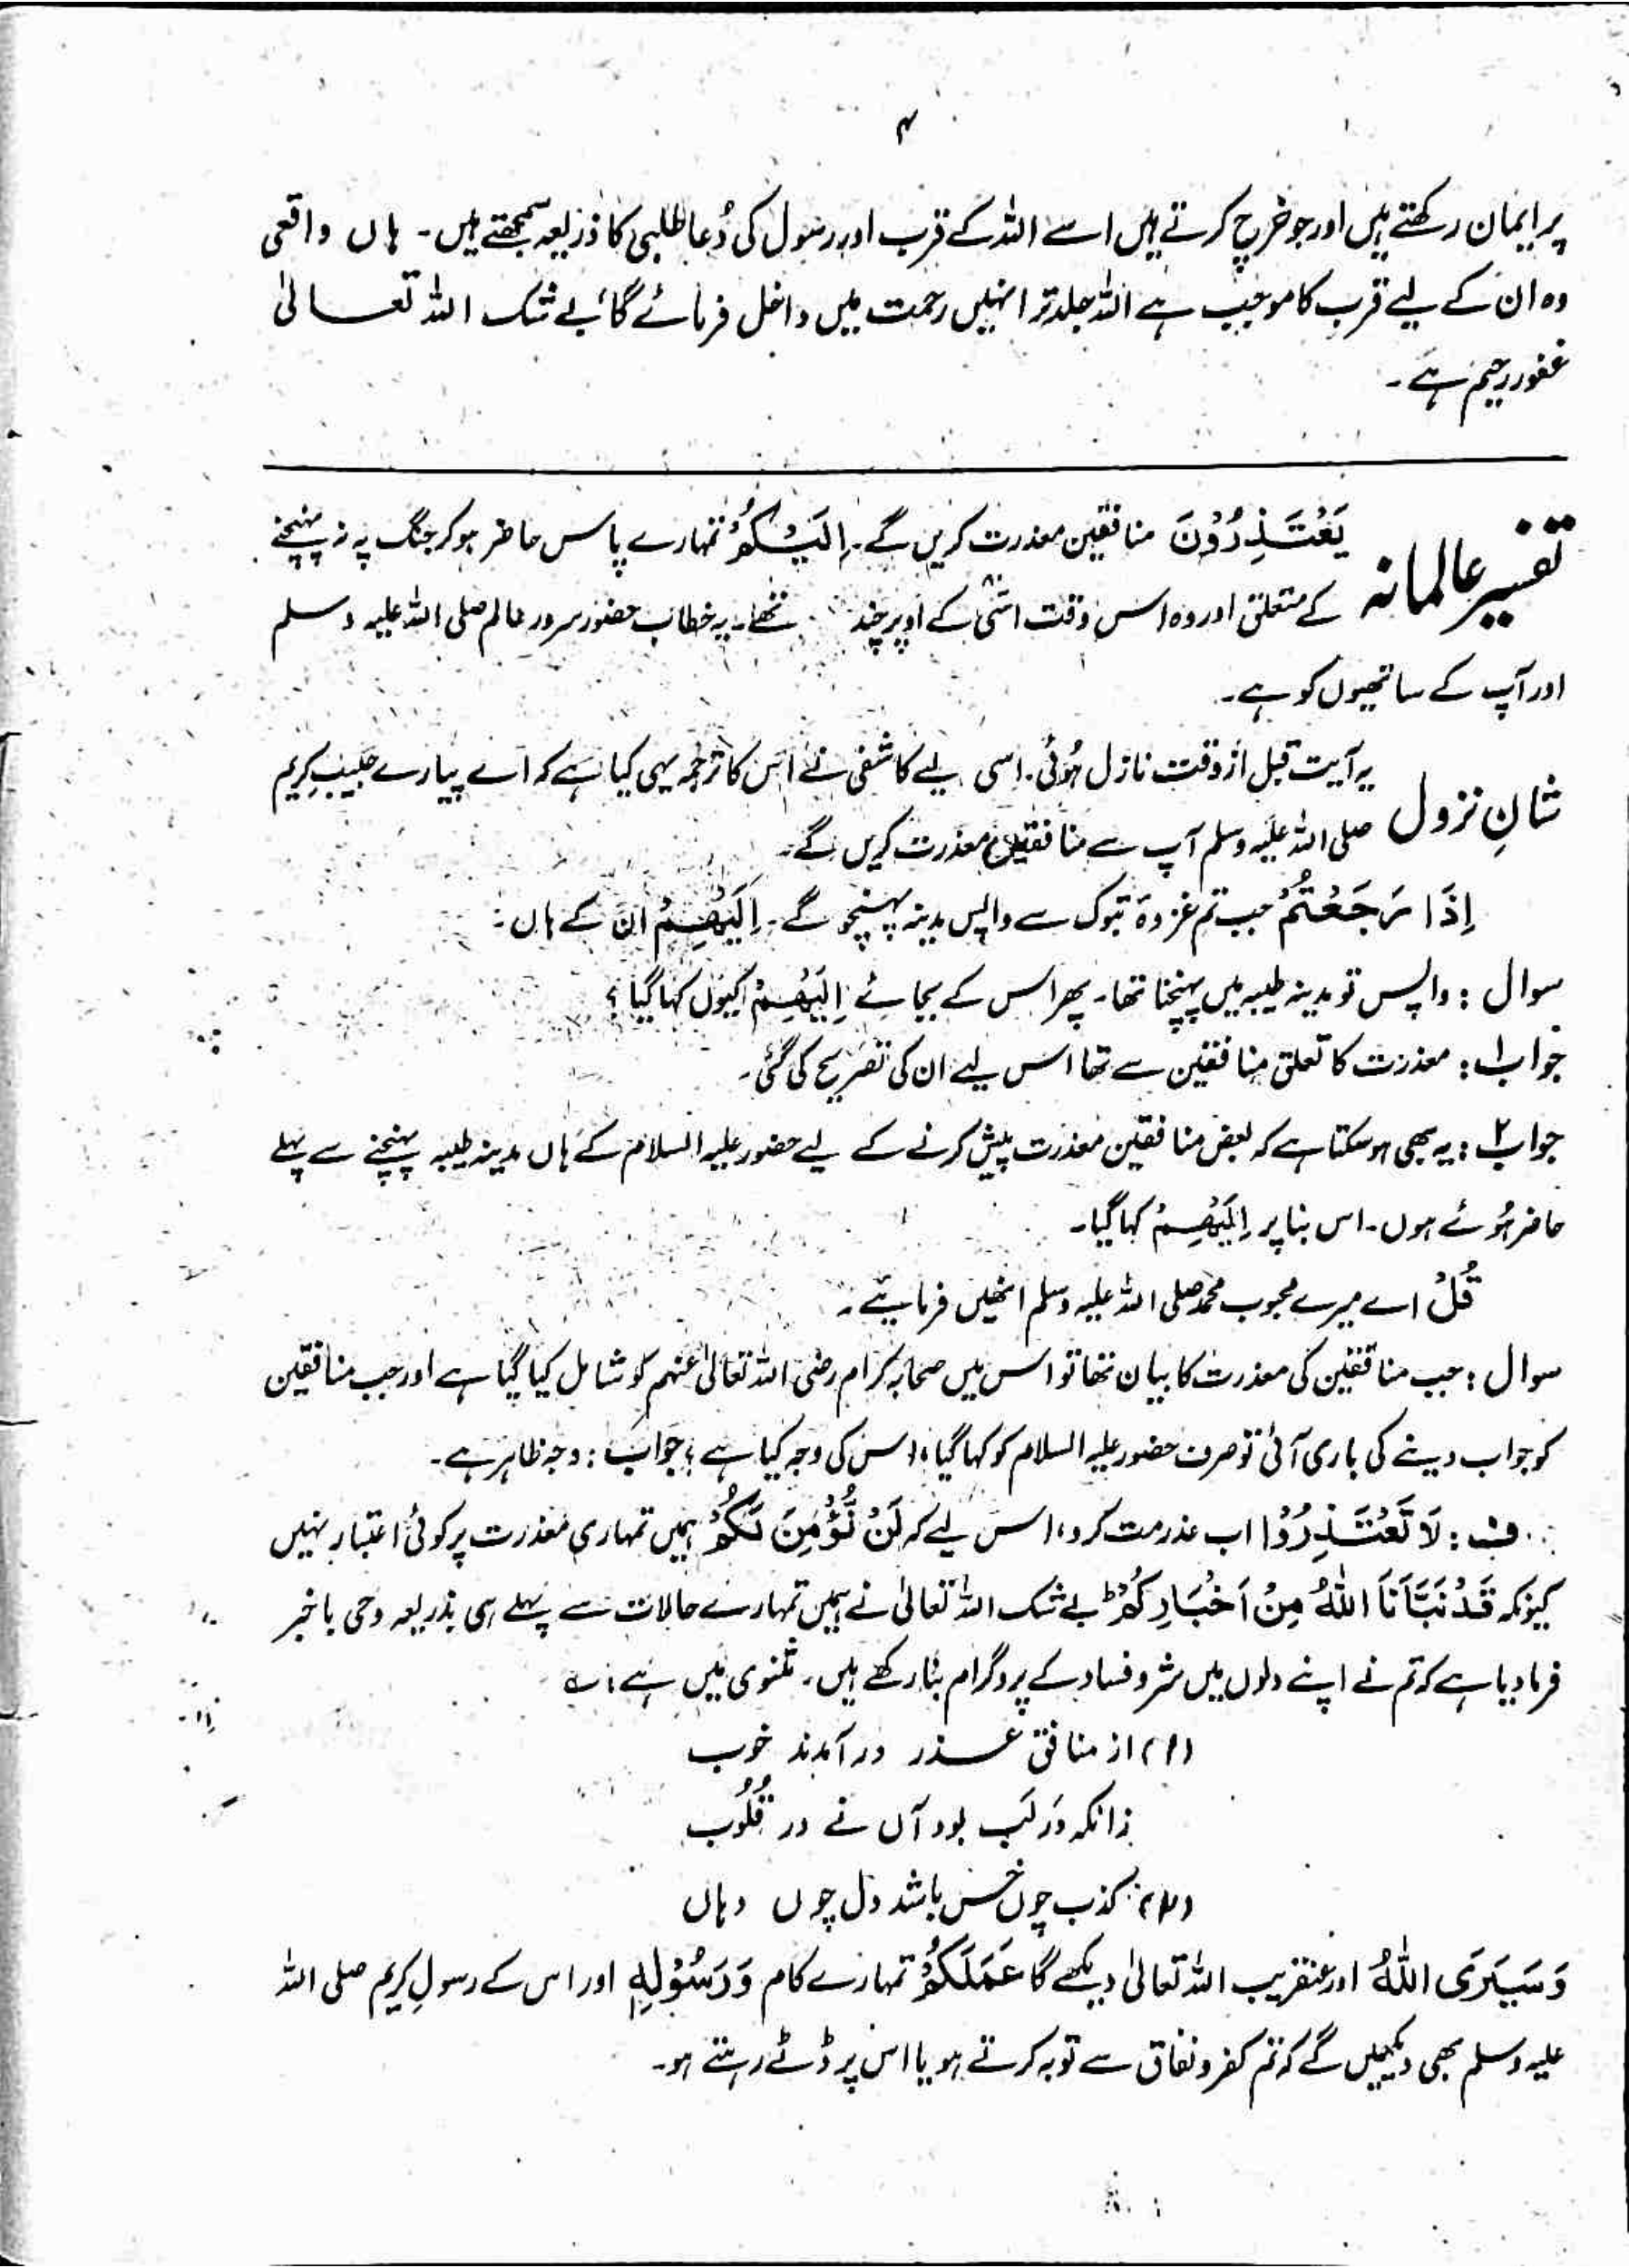 ۴
پر ایمان رکھتے ہیں اور جو خرچ کرتے ہیں اسے اللہ کے قرب اور رسول کی دُعا طلبی کا ذریعہ سمجھتے ہیں۔ ہاں واقعی
وہ ان کے لیے قرب کا موجب ہے اللہ جلد تر انہیں رحمت میں داخل فرمائے گا بے شک اللہ تعالیٰ
غفور رحیم ہے۔
تفسیر عالمانہ یَعْتَذِرُوْنَ منافقین معذرت کریں گے۔ اِلَیْکُمْ تمہارے پاس حاضر ہو کر جنگ پہ نہ پہنچنے
کے متعلق اور وہ اس وقت اسّی کے اوپر چند تھے۔ یہ خطاب حضور سرور عالم صلی اللہ علیہ وسلم
اور آپ کے ساتھیوں کو ہے۔
شانِ نزول یہ آیت قبل از وقت نازل ہُوئی۔ اسی لیے کاشفی نے اس کا ترجمہ یہی کیا ہے کہ اے پیارے حبیب کریم
صلی اللہ علیہ وسلم آپ سے منافقین معذرت کریں گے۔
اِذَا رَجَعْتُمْ جب تم غزوۂ تبوک سے واپس مدینہ پہنچو گے۔ اِلَیْھِمْ ان کے ہاں۔
سوال : واپس تو مدینہ طیبہ میں پہنچنا تھا۔ پھر اس کے بجائے اِلَیْھِمْ کیوں کہا گیا ؟
جواب ۱ : معذرت کا تعلق منافقین سے تھا اس لیے ان کی تصریح کی گئی۔
جواب ۲ : یہ بھی ہو سکتا ہے کہ بعض منافقین معذرت پیش کرنے کے لیے حضور علیہ السلام کے ہاں مدینہ طیبہ پہنچنے سے پہلے
حاضر ہُوئے ہوں۔ اس بنا پر اِلَیْھِمْ کہا گیا۔
قُلْ اے میرے محبوب محمد صلی اللہ علیہ وسلم انھیں فرمایئے۔
سوال : جب منافقین کی معذرت کا بیان تھا تو اس میں صحابہ کرام رضی اللہ تعالیٰ عنہم کو شامل کیا گیا ہے اور جب منافقین
کو جواب دینے کی باری آئی تو صرف حضور علیہ السلام کو کہا گیا، اس کی وجہ کیا ہے ؟ جواب : وجہ ظاہر ہے۔
ف : لَا تَعْتَذِرُوْا اب عذر مت کرو، اس لیے کہ لَنْ نُّؤْمِنَ لَکُمْ ہمیں تمہاری معذرت پر کوئی اعتبار نہیں
کیونکہ قَدْ نَبَّاَنَا اللہُ مِنْ اَخْبَارِکُمْ ط بے شک اللہ تعالیٰ نے ہمیں تمہارے حالات سے پہلے ہی بذریعہ وحی باخبر
فرما دیا ہے کہ تم نے اپنے دلوں میں شر و فساد کے پروگرام بنا رکھے ہیں۔ مثنوی میں ہے : ؎
(۱) از منافق عذر در آمدند خوب
زانکہ در لب بود آں نے در قُلُوب
(۲) کذب چوں خس باشد دل چوں دہاں
وَسَیَرَی اللہُ اور عنقریب اللہ تعالیٰ دیکھے گا عَمَلَکُمْ تمہارے کام وَرَسُوْلِہٖ اور اس کے رسولِ کریم صلی اللہ
علیہ وسلم بھی دیکھیں گے کہ تم کفر و نفاق سے توبہ کرتے ہو یا اس پر ڈٹے رہتے ہو۔